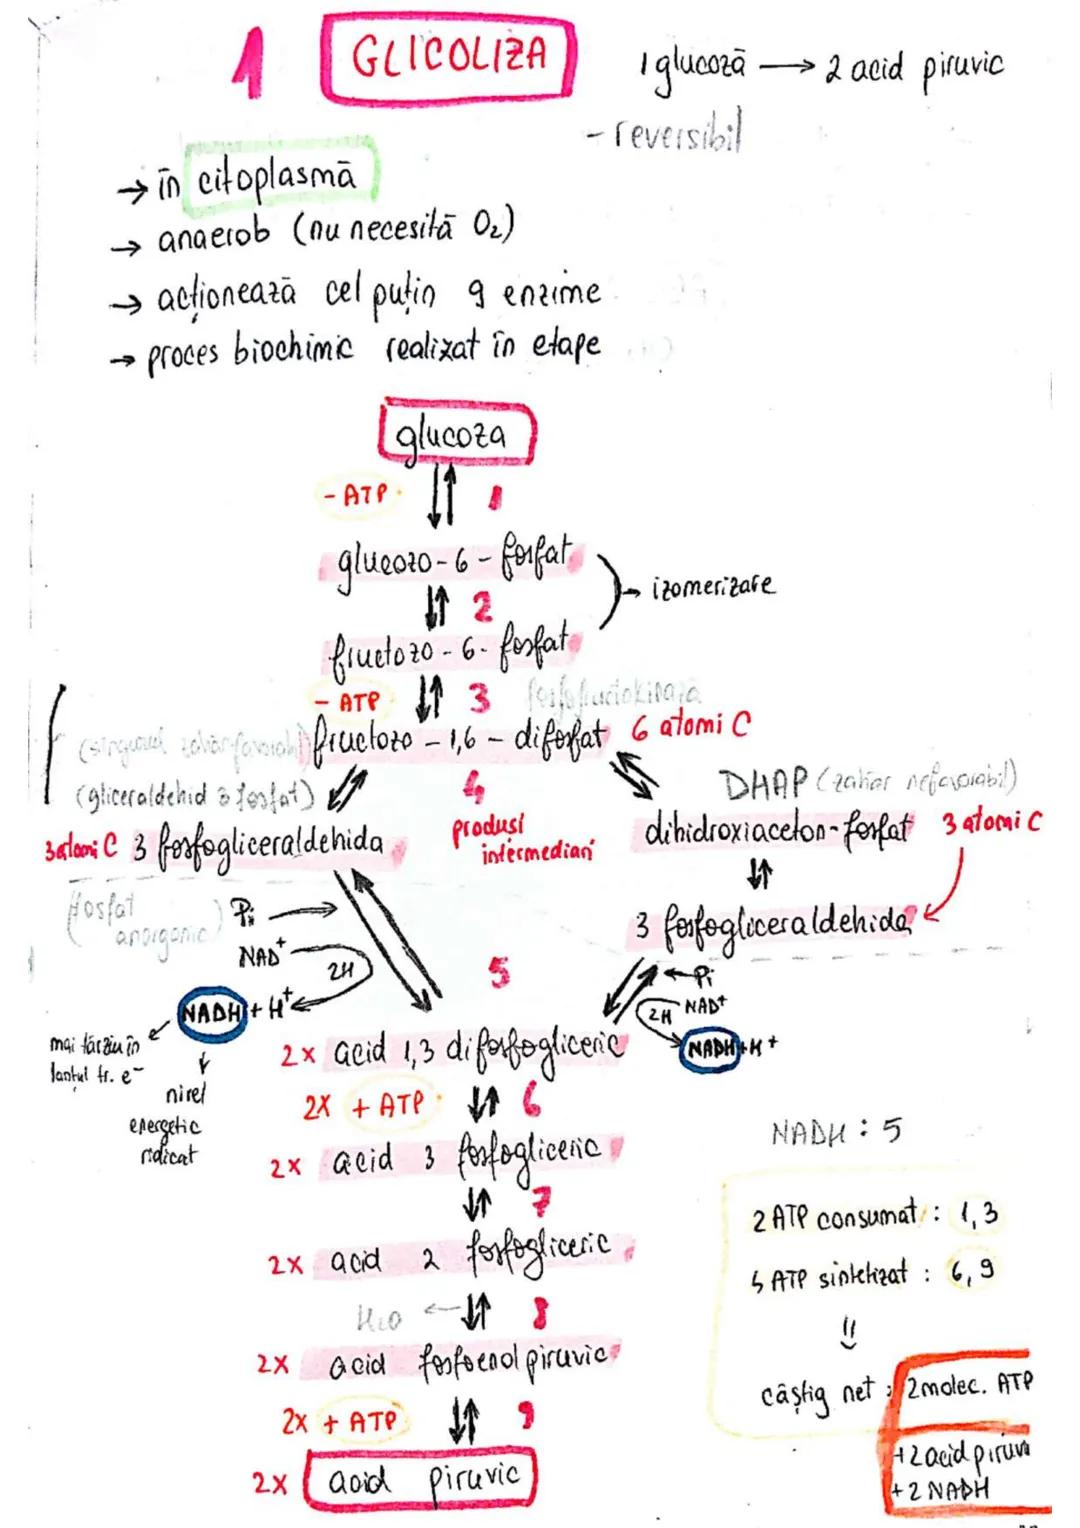 1 GLICOLIZA
1 glucoză → 2 acid piruvic
- reversibil
→ în citoplasmă
→ anaerob (nu necesită O₂)
→ acționează cel puțin 9 enzime
→ proces biochimic realizat în etape
glucoza
- ATP 1
glucozo-6-fosfat
izomerizare
2
fructozo-6-fosfat
- ATP 3 fosfofructokinaza
(singurul zahăr favorabil) fructozo-1,6-difosfat 6 atomi C
(gliceraldehid 3 fosfat) 4 DHAP (zahăr nefavorabil)
3 atomi C 3 fosfogliceraldehida produsi intermediari dihidroxiaceton-fosfat 3 atomi C
(fosfat anorganic) Pi →
3 fosfogliceraldehida
NAD⁺ 2H 5 ← Pi
NADH + H⁺ 2H NAD⁺
mai târziu în lanțul tr. e⁻
2x acid 1,3 difosfogliceric NADH + H⁺
nivel energetic ridicat
2x + ATP 6
NADH : 5
2x acid 3 fosfogliceric
7
2 ATP consumat : 1,3
2x acid 2 fosfogliceric
ATP sintetizat : 6,9
H₂O ← 8
2x acid fosfoenol piruvic
câștig net : 2 molec. ATP
2x + ATP 9
+2 acid piruvi
2x acid piruvic
+2 NADH